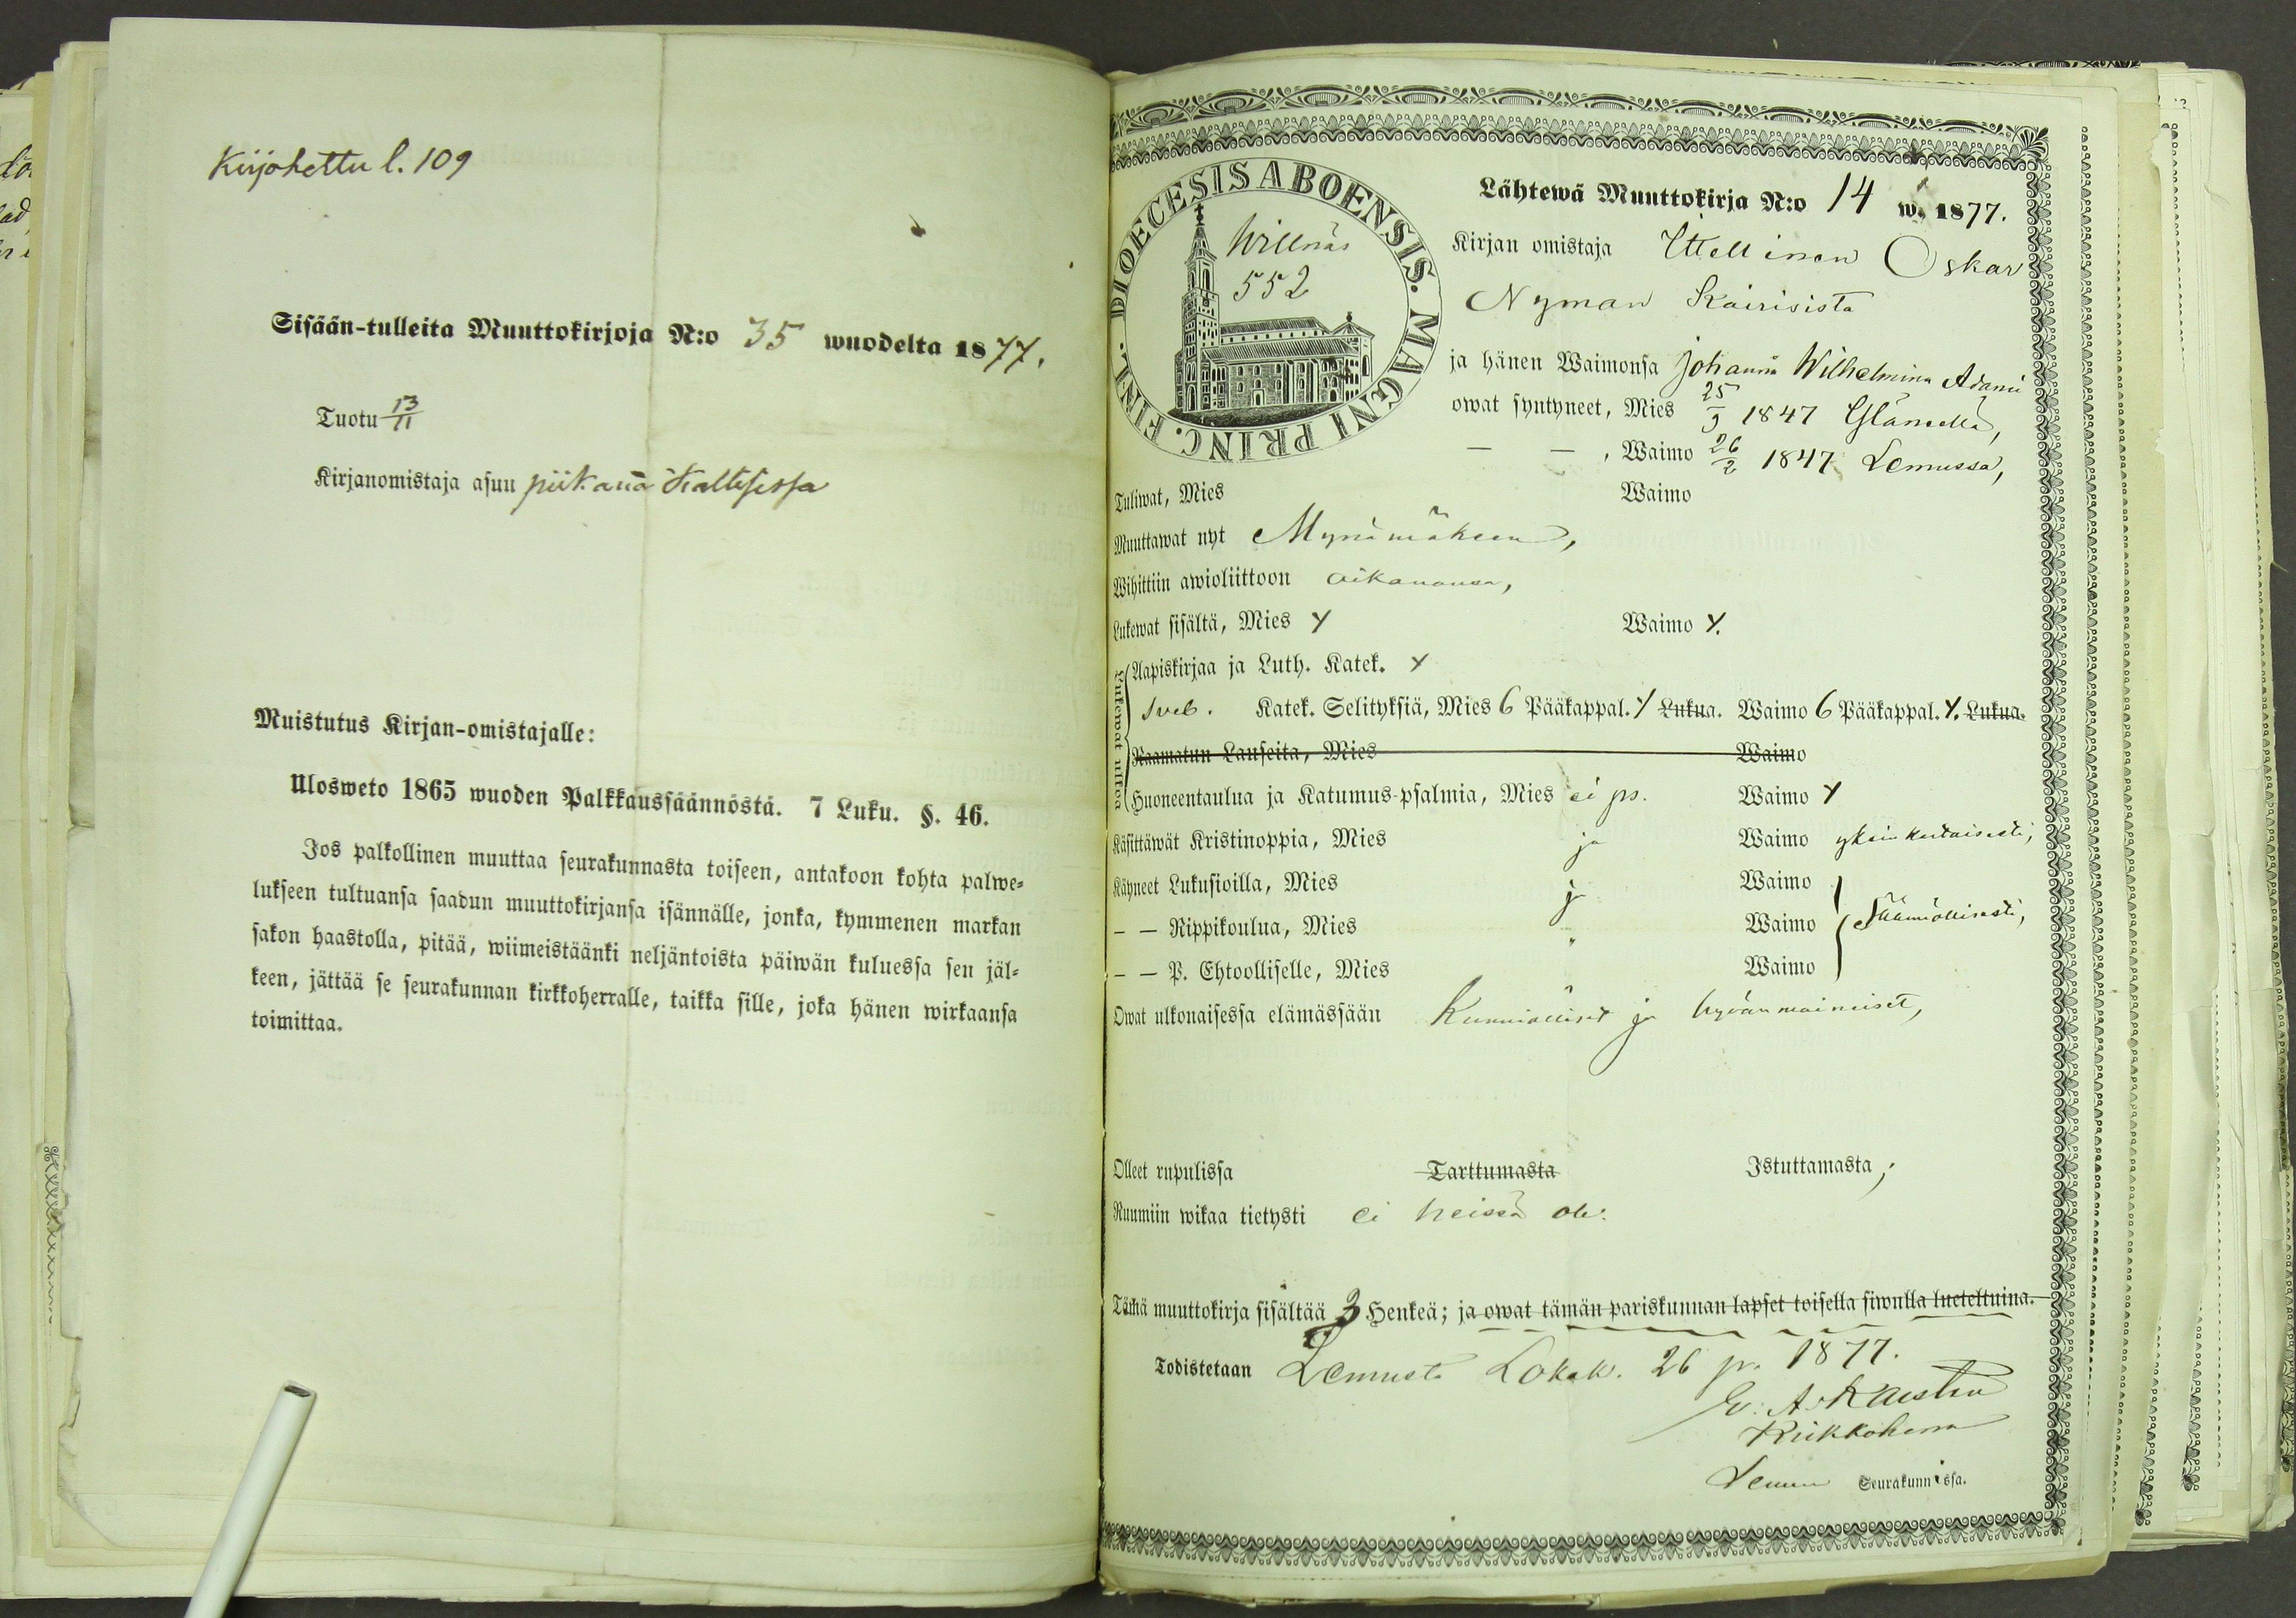 Kirjoitettu l. 109
Sisään-tulleita Muuttokirjoja N:o 35 wuodelta 1877.
Tuotu 13/11
Kirjanomistaja asuu piikana
Muistutus Kirjan-omistajalle:
Ulosweto 1865 wuoden Palkkaussäännöstä. 7 Luku. §. 46.
Jos palkollinen muuttaa seurakunnasta toiseen, antakoon kohta palwe-
lukseen tultuansa saadun muuttokirjansa isännälle, jonka, kymmenen markan
sakon haastolla, pitää, wiimeistäänki neljäntoista päiwän kuluessa sen jäl-
keen, jättää se seurakunnan kirkkoherralle, taikka sille, joka hänen wirkaansa
toimittaa.
DIOECESIS ABOENSIS. MAGNI PRINC. FINL.
Willnäs
552
Lähtewä Muuttokirja N:o 14 w. 1877.
Kirjan omistaja Itellinen Oskar
Nyman Kairisista
ja hänen Waimonsa Johanna Wilhelmina
owat syntyneet, Mies 25 1847
— — , Waimo 26/2 1847 Lemussa,
Tuliwat, Mies Waimo
Muuttawat nyt Mynämäkeen,
Wihittiin awioliittoon aikanansa,
Lukewat sisältä, Mies Y Waimo Y.
Lukewat ultoa
Aapiskirjaa ja Luth. Katek. Y
Sveb. Katek. Selityksiä, Mies 6 Pääkappal. Y Lukua. Waimo 6 Pääkappal. Y. Lukua.
Raamatun Lauseita, Mies Waimo
Huoneentaulua ja Katumus-psalmia, Mies ei ps. Waimo Y
Käsittäwät Kristinoppia, Mies ja Waimo yksinkertaisesti,
Käyneet Lukusioilla, Mies ja Waimo
— — Rippikoulua, Mies " Waimo Säännöllisesti,
— — P. Ehtoolliselle, Mies Waimo
Owat ulkonaisessa elämässään Kunnialliset ja hyvänmainiset,
Olleet rupulissa Tarttumasta Istuttamasta,
Ruumiin wikaa tietysti ei heissä ole.
Tämä muuttokirja sisältää 3 Henkeä; ja owat tämän pariskunnan lapset toisella siwulla lueteltuina.
Todistetaan Lemusta Lokak. 26 p. 1877.
Kirkkoherra
Lemun Seurakunnissa.